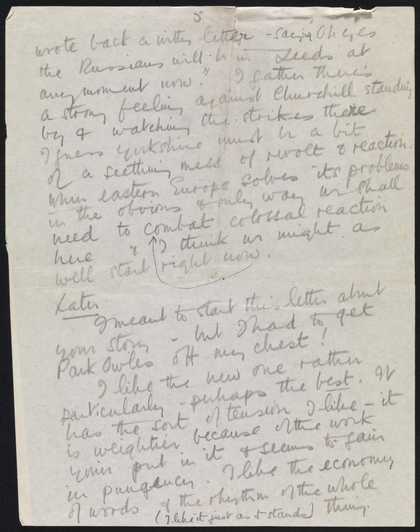 5
wrote back a witty letter - saying Oh yes
the Russians will be in Leeds at
any moment now." I gather there's
a strong feeling against Churchill standing
by & watching the strikes there
I guess Yorkshire must be a bit
of a seething mess of revolt & reaction.
When eastern Europe solves its problems
in the obvious & only way we shall
need to combat colossal reaction
here & I think we might as
well start right now.
Later
I meant to start this letter about
your story - but I had to get
Park Owles off my chest!
I like the new one rather
particularly - perhaps the best. It
has the sort of tension I like - it
is weightier because of the work
you've put in it & seems to gain
in pungency. I like the economy
of words & the rhythm of the whole
(I like it just as it stands) thing